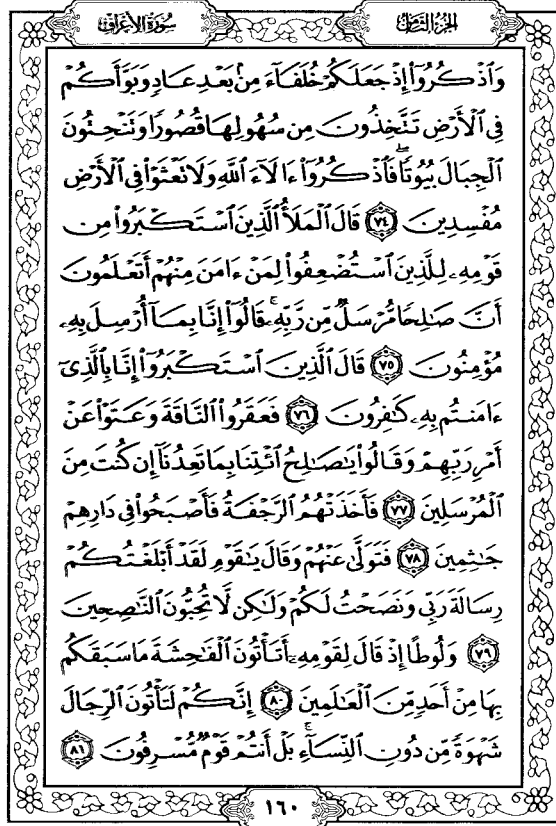 سُورَةُ الأَعْرَافِ الجُزْءُ الثَّامِنُ
وَٱذْكُرُوٓا۟ إِذْ جَعَلَكُمْ خُلَفَآءَ مِنۢ بَعْدِ عَادٍ وَبَوَّأَكُمْ
فِى ٱلْأَرْضِ تَتَّخِذُونَ مِن سُهُولِهَا قُصُورًا وَتَنْحِتُونَ
ٱلْجِبَالَ بُيُوتًا ۖ فَٱذْكُرُوٓا۟ ءَالَآءَ ٱللَّهِ وَلَا تَعْثَوْا۟ فِى ٱلْأَرْضِ
مُفْسِدِينَ ٧٤ قَالَ ٱلْمَلَأُ ٱلَّذِينَ ٱسْتَكْبَرُوا۟ مِن
قَوْمِهِۦ لِلَّذِينَ ٱسْتُضْعِفُوا۟ لِمَنْ ءَامَنَ مِنْهُمْ أَتَعْلَمُونَ
أَنَّ صَٰلِحًا مُّرْسَلٌ مِّن رَّبِّهِۦ ۚ قَالُوٓا۟ إِنَّا بِمَآ أُرْسِلَ بِهِۦ
مُؤْمِنُونَ ٧٥ قَالَ ٱلَّذِينَ ٱسْتَكْبَرُوٓا۟ إِنَّا بِٱلَّذِىٓ
ءَامَنتُم بِهِۦ كَٰفِرُونَ ٧٦ فَعَقَرُوا۟ ٱلنَّاقَةَ وَعَتَوْا۟ عَنْ
أَمْرِ رَبِّهِمْ وَقَالُوا۟ يَٰصَٰلِحُ ٱئْتِنَا بِمَا تَعِدُنَآ إِن كُنتَ مِنَ
ٱلْمُرْسَلِينَ ٧٧ فَأَخَذَتْهُمُ ٱلرَّجْفَةُ فَأَصْبَحُوا۟ فِى دَارِهِمْ
جَٰثِمِينَ ٧٨ فَتَوَلَّىٰ عَنْهُمْ وَقَالَ يَٰقَوْمِ لَقَدْ أَبْلَغْتُكُمْ
رِسَالَةَ رَبِّى وَنَصَحْتُ لَكُمْ وَلَٰكِن لَّا تُحِبُّونَ ٱلنَّٰصِحِينَ
٧٩ وَلُوطًا إِذْ قَالَ لِقَوْمِهِۦٓ أَتَأْتُونَ ٱلْفَٰحِشَةَ مَا سَبَقَكُم
بِهَا مِنْ أَحَدٍ مِّنَ ٱلْعَٰلَمِينَ ٨٠ إِنَّكُمْ لَتَأْتُونَ ٱلرِّجَالَ
شَهْوَةً مِّن دُونِ ٱلنِّسَآءِ ۚ بَلْ أَنتُمْ قَوْمٌ مُّسْرِفُونَ ٨١
١٦٠